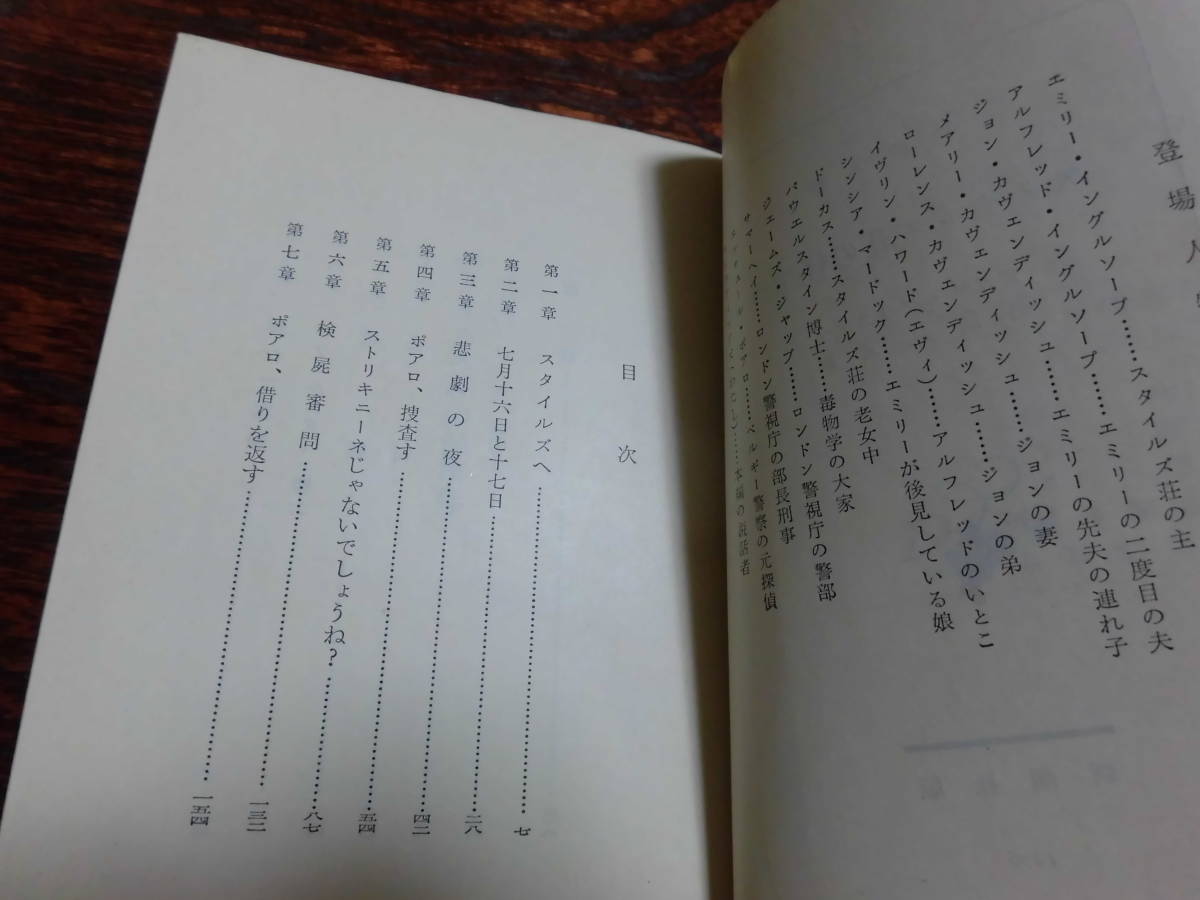 登場人
エミリー・イングルソープ……スタイルズ荘の主
アルフレッド・イングルソープ……エミリーの二度目の夫
ジョン・カヴェンディッシュ……エミリーの先夫の連れ子
メアリー・カヴェンディッシュ……ジョンの妻
ローレンス・カヴェンディッシュ……ジョンの弟
イヴリン・ハワード(エヴィ)……アルフレッドのいとこ
シンシア・マードック……エミリーが後見している娘
ドーカス……スタイルズ荘の老女中
バウエルスタイン博士……毒物学の大家
ジェームズ・ジャップ……ロンドン警視庁の警部
サマーヘイ……ロンドン警視庁の部長刑事
エルキュール・ポアロ……ベルギー警察の元探偵
……本編の説話者
目次
第一章 スタイルズへ……七
第二章 七月十六日と十七日……二八
第三章 悲劇の夜……四二
第四章 ポアロ、捜査す……五四
第五章 ストリキニーネじゃないでしょうね?……八七
第六章 検屍審問……一三二
第七章 ポアロ、借りを返す……一五四